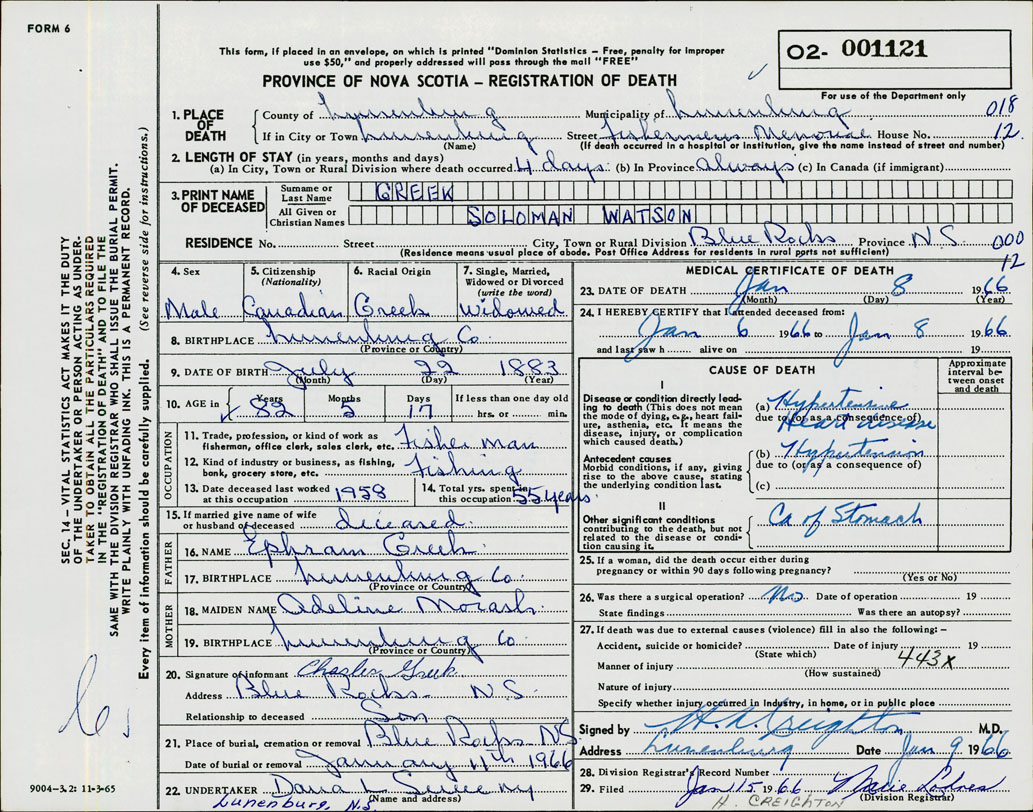 FORM 6
This form, if placed in an envelope, on which is printed "Dominion Statistics – Free, penalty for improper
use $50," and properly addressed will pass through the mail "FREE"
O2- 001121
PROVINCE OF NOVA SCOTIA – REGISTRATION OF DEATH
For use of the Department only
1. PLACE OF DEATH
County of Lunenburg Municipality of Lunenburg 018
If in City or Town Lunenburg Street Fishermens Memorial House No. 12
(Name) (If death occurred in a hospital or institution, give the name instead of street and number)
2. LENGTH OF STAY (in years, months and days)
(a) In City, Town or Rural Division where death occurred 4 days (b) In Province always (c) In Canada (if immigrant)
3. PRINT NAME OF DECEASED
Surname or Last Name GREEK
All Given or Christian Names SOLOMAN WATSON
RESIDENCE No. Street City, Town or Rural Division Blue Rocks Province N.S. 000
(Residence means usual place of abode. Post Office Address for residents in rural parts not sufficient)
12
4. Sex
Male
5. Citizenship
(Nationality)
Canadian
6. Racial Origin
Greek
7. Single, Married,
Widowed or Divorced
(write the word)
Widowed
8. BIRTHPLACE Lunenburg Co.
(Province or Country)
9. DATE OF BIRTH July 22 1883
(Month) (Day) (Year)
10. AGE in Years Months Days If less than one day old
82 5 17 hrs. or min.
OCCUPATION
11. Trade, profession, or kind of work as
fisherman, office clerk, sales clerk, etc. Fisherman
12. Kind of industry or business, as fishing,
bank, grocery store, etc. Fishing
13. Date deceased last worked
at this occupation 1958
14. Total yrs. spent in
this occupation 55 years
15. If married give name of wife
or husband of deceased diceased
FATHER
16. NAME Ephram Greek
17. BIRTHPLACE Lunenburg Co.
(Province or Country)
MOTHER
18. MAIDEN NAME Adeline Morash
19. BIRTHPLACE Lunenburg Co
(Province or Country)
20. Signature of informant Charles Greek
Address Blue Rocks N.S.
Relationship to deceased Son
21. Place of burial, cremation or removal Blue Rocks N.S.
Date of burial or removal January 11th 1966
22. UNDERTAKER
Lunenburg, N.S. (Name and address)
MEDICAL CERTIFICATE OF DEATH
23. DATE OF DEATH Jan 8 1966
(Month) (Day) (Year)
24. I HEREBY CERTIFY that I attended deceased from:
Jan 6 1966 to Jan 8 1966
and last saw h alive on 19
CAUSE OF DEATH
Approximate
interval be-
tween onset
and death
I
Disease or condition directly lead-
ing to death (This does not mean
the mode of dying, e.g., heart fail-
ure, asthenia, etc. It means the
disease, injury, or complication
which caused death.)
(a) Hypertensive
due to (or as a consequence of)
Heart disease
Antecedent causes
Morbid conditions, if any, giving
rise to the above cause, stating
the underlying condition last.
(b) Hypertension
due to (or as a consequence of)
(c)
II
Other significant conditions
contributing to the death, but not
related to the disease or condi-
tion causing it.
Ca of Stomach
25. If a woman, did the death occur either during
pregnancy or within 90 days following pregnancy?
(Yes or No)
26. Was there a surgical operation? No Date of operation 19
State findings Was there an autopsy?
27. If death was due to external causes (violence) fill in also the following: –
Accident, suicide or homicide? Date of injury 19
(State which) 443X
Manner of injury
(How sustained)
Nature of injury
Specify whether injury occurred in industry, in home, or in public place
Signed by H. A. Creighton M.D.
Address Lunenburg Date Jan 9 1966
28. Division Registrar's Record Number
29. Filed Jan 15 1966
H. CREIGHTON (Division Registrar)
SEC. 14 – VITAL STATISTICS ACT MAKES IT THE DUTY
OF THE UNDERTAKER OR PERSON ACTING AS UNDER-
TAKER TO OBTAIN ALL THE PARTICULARS REQUIRED
IN THE "REGISTRATION OF DEATH" AND TO FILE THE
SAME WITH THE DIVISION REGISTRAR WHO SHALL ISSUE THE BURIAL PERMIT.
WRITE PLAINLY WITH UNFADING INK. THIS IS A PERMANENT RECORD.
Every item of information should be carefully supplied. (See reverse side for instructions.)
9004-3.2: 11-3-65